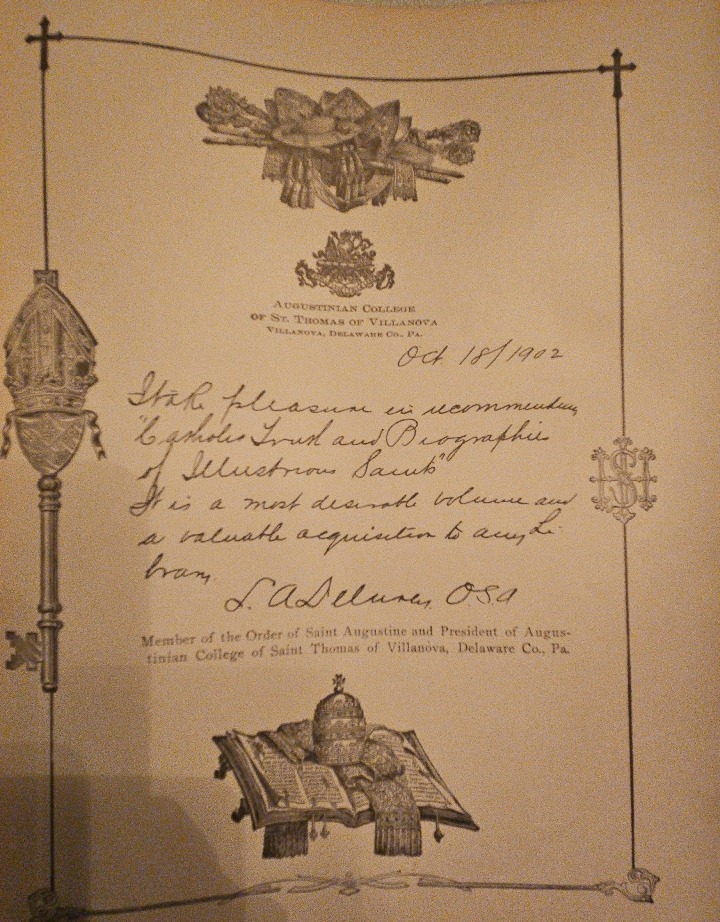 AUGUSTINIAN COLLEGE
OF ST. THOMAS OF VILLANOVA
VILLANOVA, DELAWARE CO., PA.
Oct 18/1902
I take pleasure in recommending
"Catholic Truth and Biographies
of Illustrious Saints"
It is a most desirable volume and
a valuable acquisition to any Li-
brary.
L. A. Delurey OSA
Member of the Order of Saint Augustine and President of Augus-
tinian College of Saint Thomas of Villanova, Delaware Co., Pa.
IHS